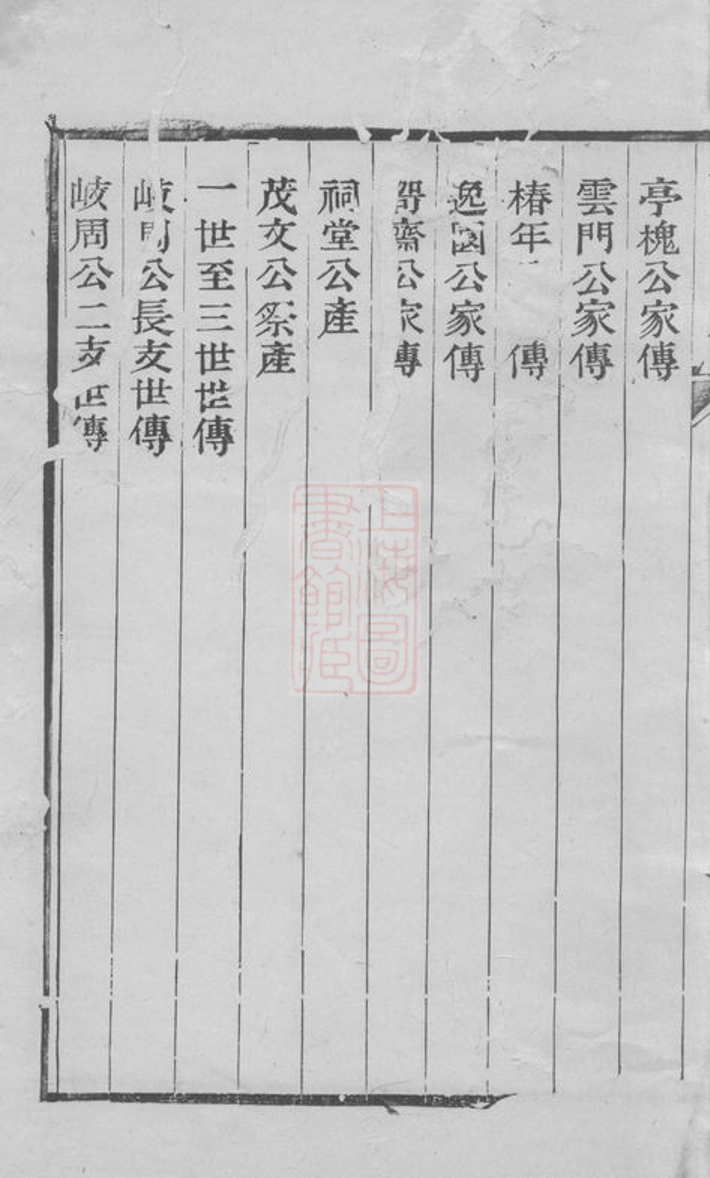 亭槐公家傳
雲門公家傳
椿年 傳
逸園公家傳
齋公家傳
祠堂公產
茂文公祭產
一世至三世世傳
岐周公長支世傳
岐周公二支世傳
上海圖書館藏